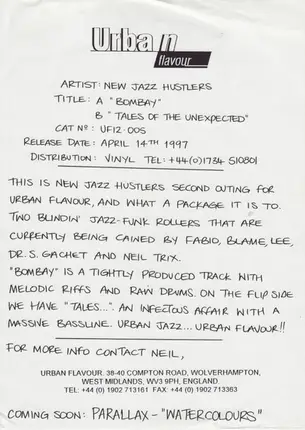 Urban
flavour
ARTIST: NEW JAZZ HUSTLERS
TITLE: A "BOMBAY"
B "TALES OF THE UNEXPECTED"
CAT Nº: UF12-005
RELEASE DATE: APRIL 14TH 1997
DISTRIBUTION: VINYL TEL: +44(0)1734 510801
THIS IS NEW JAZZ HUSTLERS SECOND OUTING FOR
URBAN FLAVOUR, AND WHAT A PACKAGE IT IS TO.
TWO BLINDIN' JAZZ-FUNK ROLLERS THAT ARE
CURRENTLY BEING CAINED BY FABIO, BLAME, LEE,
DR. S. GACHET AND NEIL TRIX.
"BOMBAY" IS A TIGHTLY PRODUCED TRACK WITH
MELODIC RIFFS AND RAW DRUMS. ON THE FLIP SIDE
WE HAVE "TALES...". AN INFECTOUS AFFAIR WITH A
MASSIVE BASSLINE. URBAN JAZZ... URBAN FLAVOUR!!
FOR MORE INFO CONTACT NEIL,
URBAN FLAVOUR. 38-40 COMPTON ROAD, WOLVERHAMPTON,
WEST MIDLANDS, WV3 9PH, ENGLAND.
TEL: +44 (0) 1902 713161 / FAX: +44 (0) 1902 713363
COMING SOON: PARALLAX - "WATERCOLOURS"